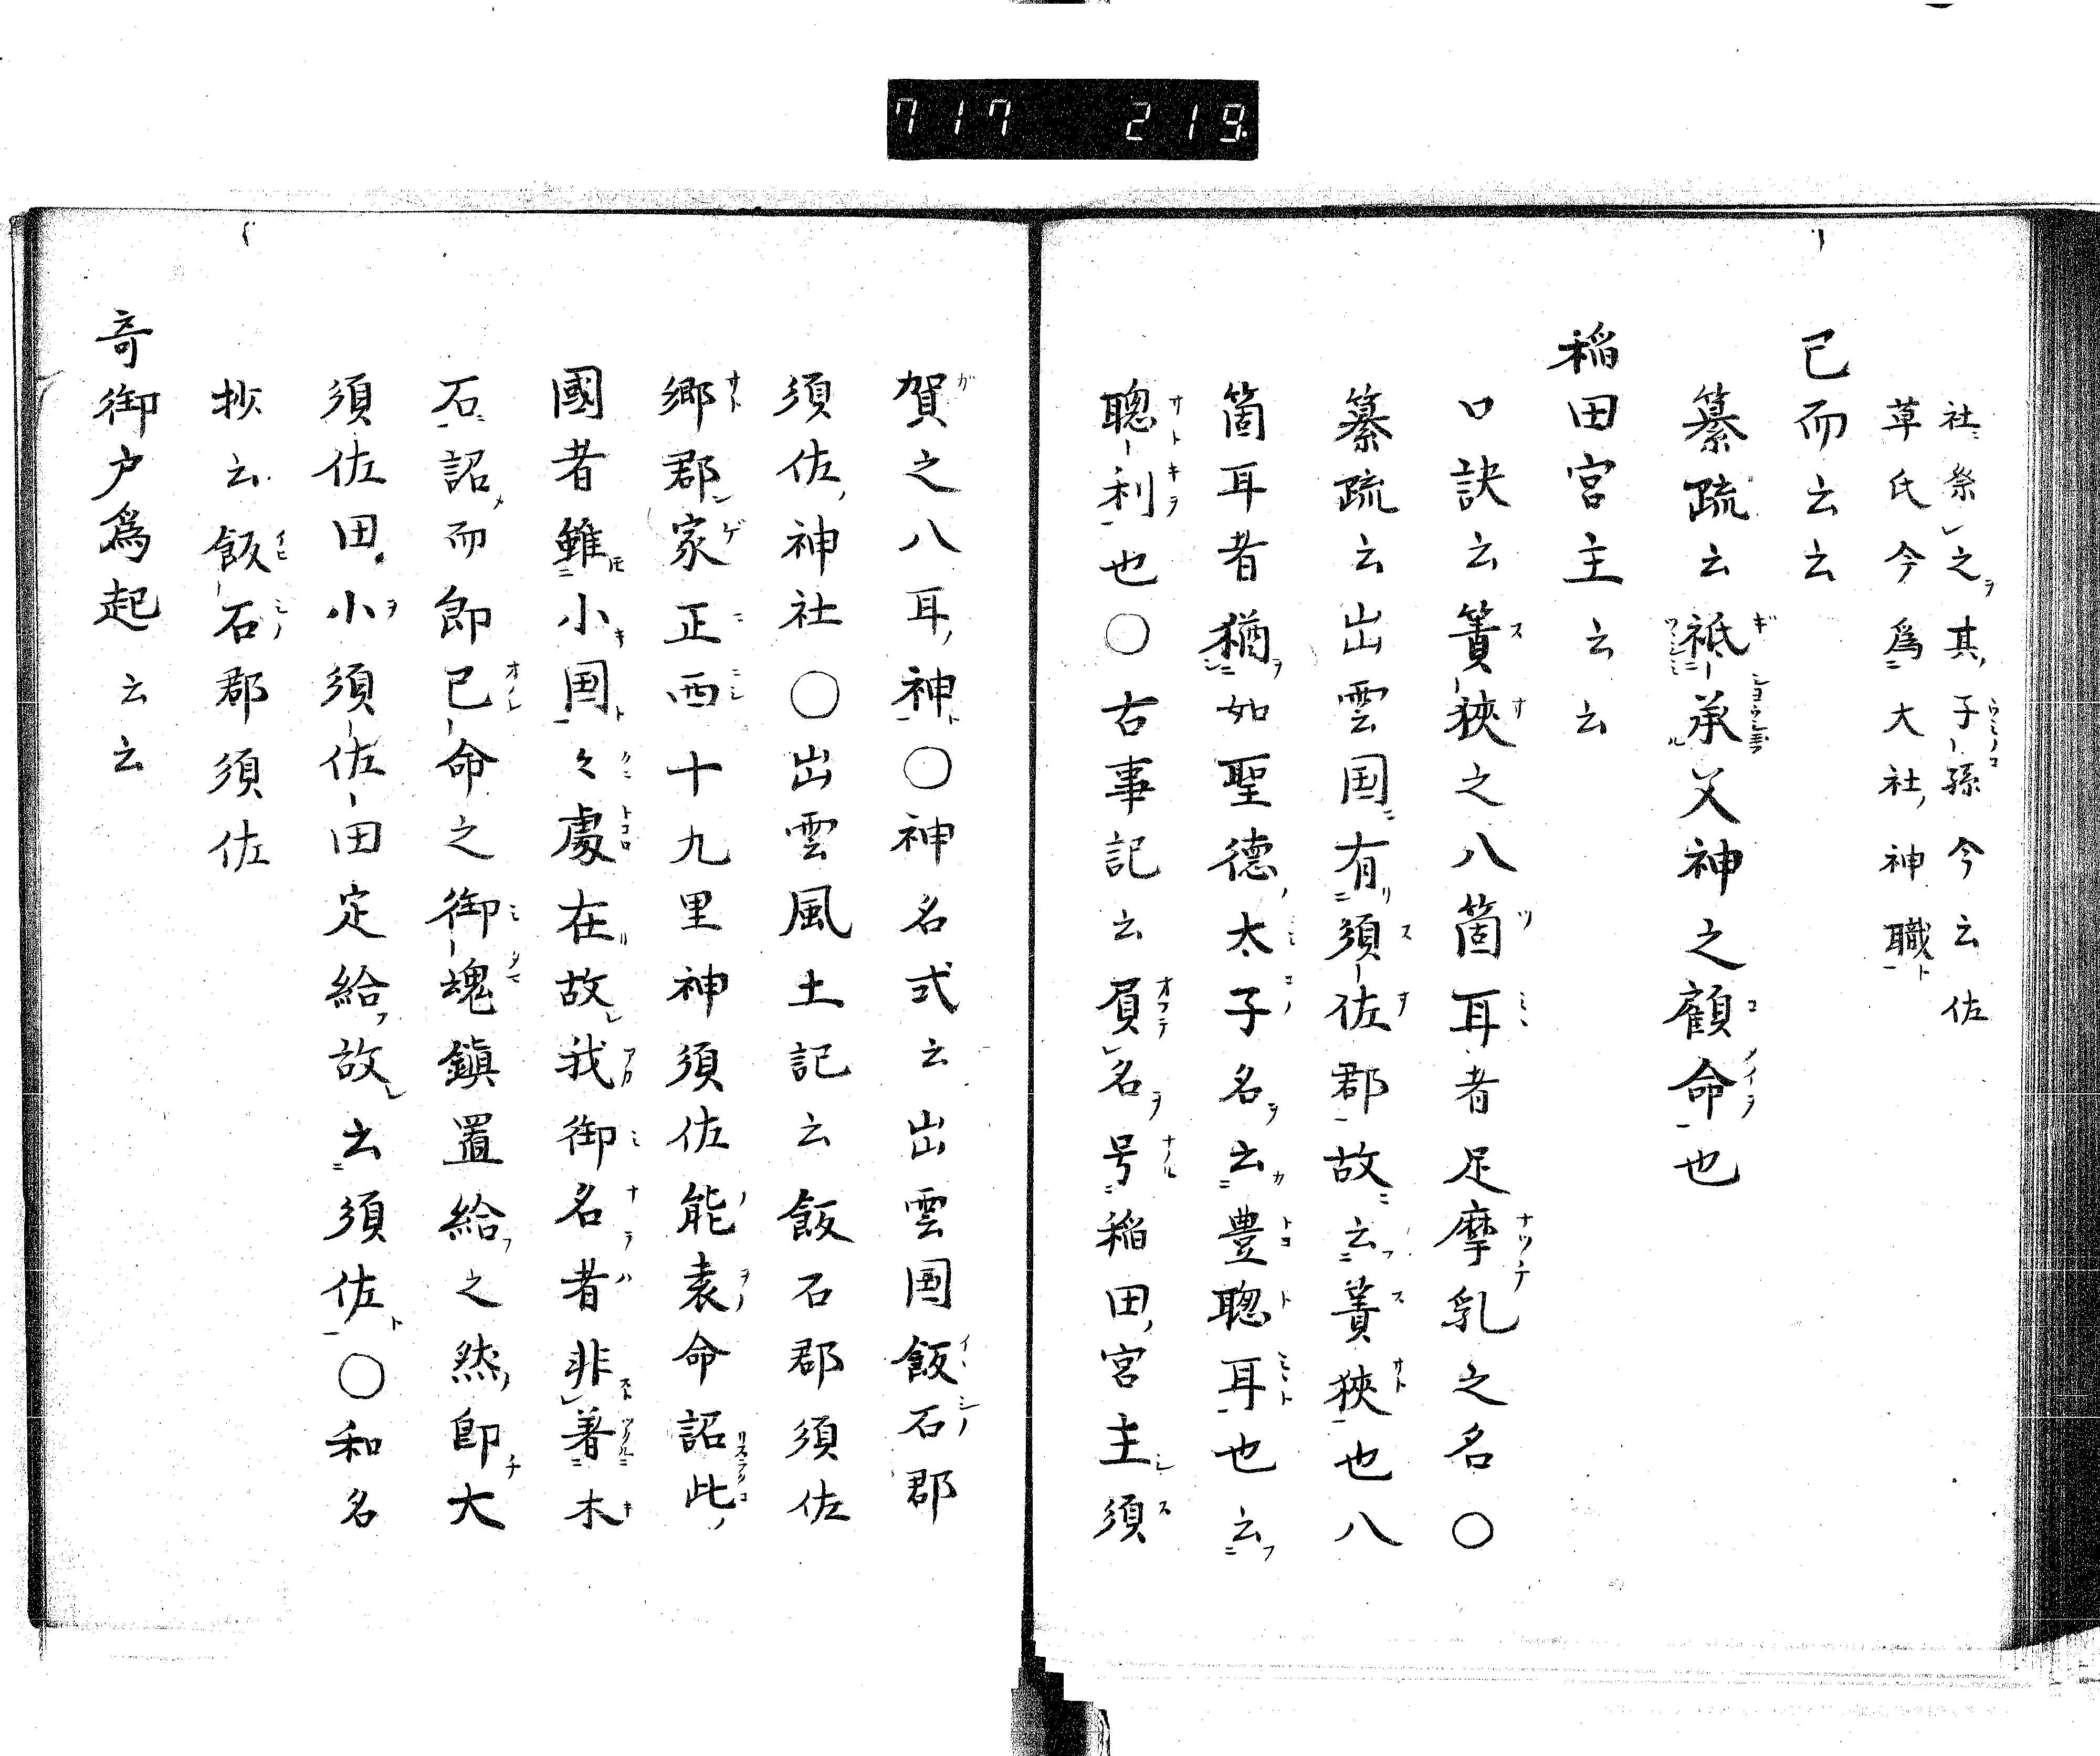 717 219.
社祭之其子孫今云佐
草氏今爲大社神職
已而云云
纂疏云祗承父神之顧命也
稲田宮主云云
口訣云簀狹之八箇耳者足摩乳之名〇
纂疏云出雲国有須佐郡故云簀狹也八
箇耳者猶如聖德太子名云豊聰耳也云
聰利也〇古事記云負名号稲田宮主須
賀之八耳神〇神名式云出雲国飯石郡
須佐神社〇出雲風土記云飯石郡須佐
郷郡家正西十九里神須佐能袁命詔此
國者雖小国〻處在故我御名者非著木
石詔而即已命之御魂鎮置給之然即大
須佐田小須佐田定給故云須佐〇和名
抄云飯石郡須佐
奇御戸爲起云云